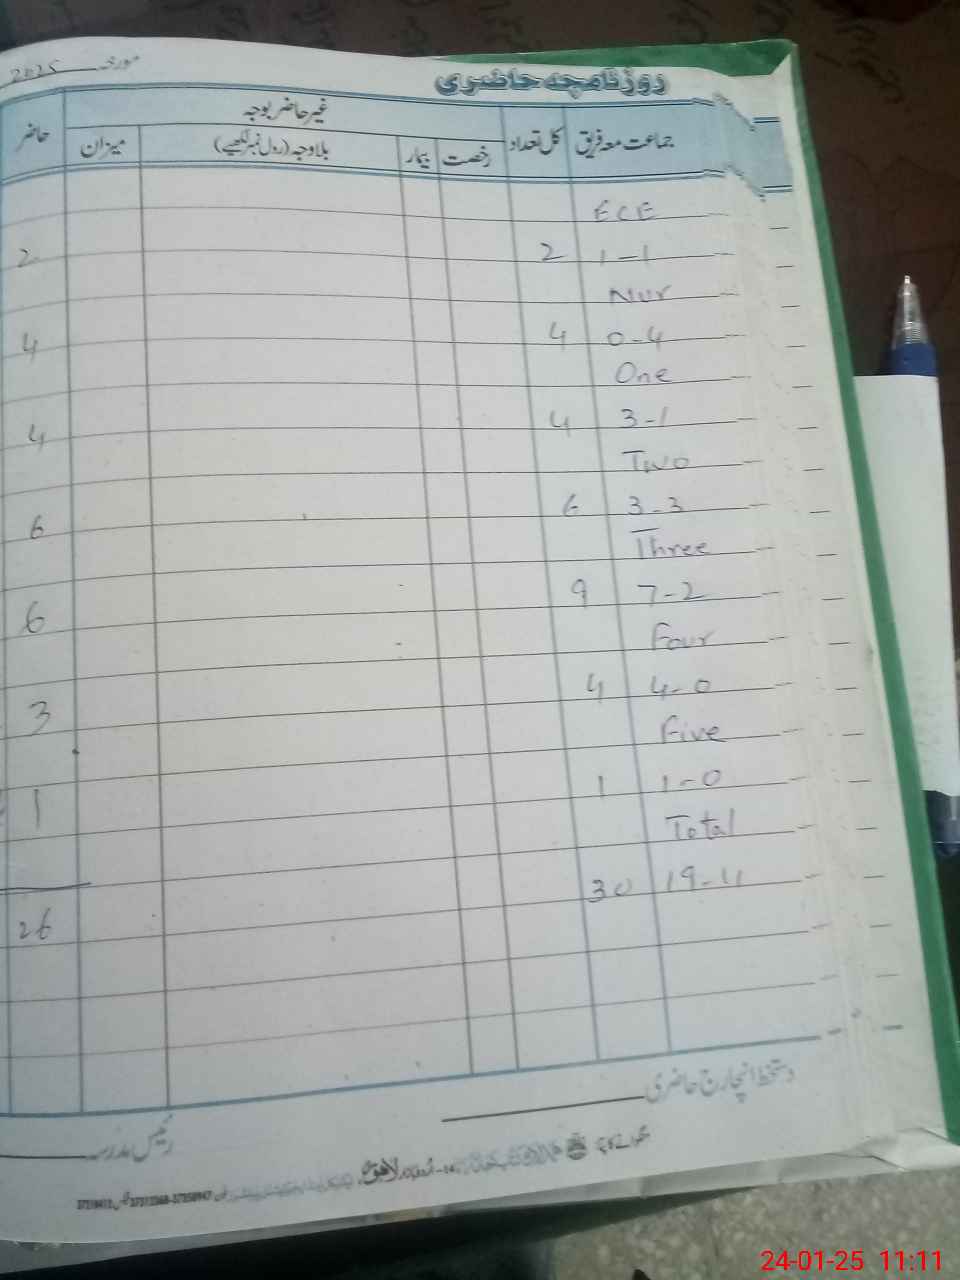 روزنامچہ حاضری
مورخہ 2025
جماعت معہ فریق کل تعداد غیر حاضر بوجہ حاضر
رخصت بیمار بلاوجہ (رول نمبر لکھیے) میزان
ECE
1-1 2 2
Nur
0-4 4 4
One
3-1 4 4
Two
3-3 6 6
Three
7-2 9 6
Four
4-0 4 3
Five
1-0 1 1
Total
19-11 30 26
دستخط انچارج حاضری
رئیس مدرسہ
منگوانے کا پتہ اردو بازار لاہور
24-01-25 11:11